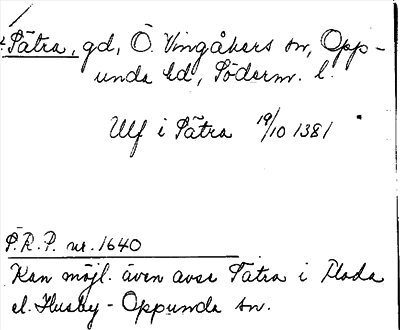 Sätra, gd, Ö. Vingåkers sn, Opp-
unda hd, Söderm. l.
Ulf i Sätra 19/10 1381
S.R.P. nr. 1640
Kan möjl. även avse Sätra i Floda
el. Husby-Oppunda sn.